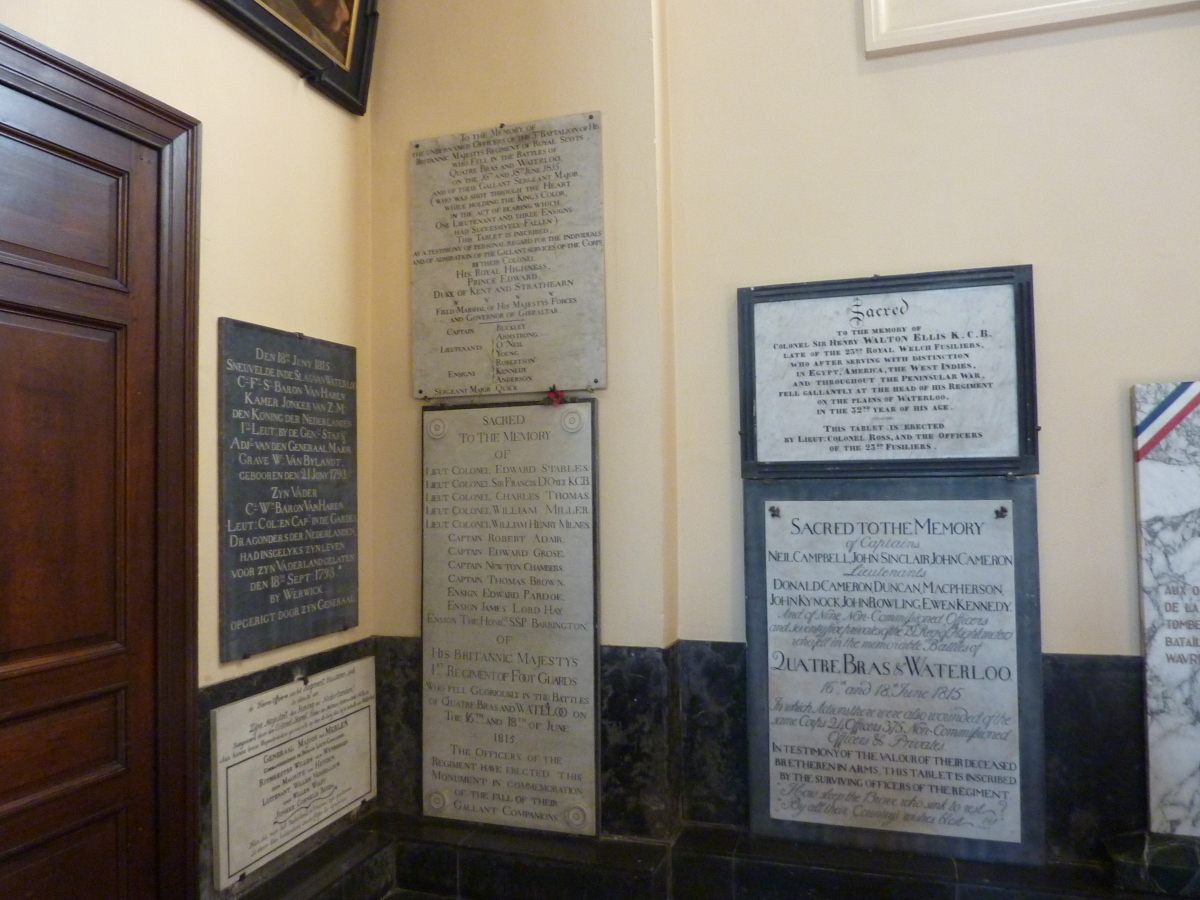 DEN 18DEN JUNY 1815
SNEUVELDE IN DE SLAG VAN WATERLO
C=F=S= BARON VAN HAREN
KAMER JONKER VAN Z. M:
DEN KONING DER NEDERLANDEN
1E LEUT: BY DE GENL STAF
ADJT VAN DEN GENERAAL MAJOR
GRAVE W: VAN BYLANDT
GEBOOREN DEN 21 JUNY 1793.
ZYN VADER
C=WM BARON VAN HAREN
LEUT: COL: EN CAPN IN DE GARDES
DRAGONDERS DER NEDERLANDEN
HAD INSGELYKS ZYN LEVEN
VOOR ZYN VADERLAND GELATEN
DEN 18E SEPT 1793
BY WERWICK
OPGERICT DOOR ZYN GENERAAL
GENERAAL MAJOOR VAN MERLEN
TO THE MEMORY OF
THE UNDERNAMED OFFICERS OF THE 3RD BATTALION OF HIS
BRITANNIC MAJESTY'S REGIMENT OF ROYAL SCOTS
WHO FELL IN THE BATTLES OF
QUATRE BRAS AND WATERLOO,
ON THE 16TH AND 18TH JUNE 1815
AND OF THEIR GALLANT SERGEANT MAJOR
(WHO WAS SHOT THROUGH THE HEART
WHILE HOLDING THE KING'S COLOR,
IN THE ACT OF BEARING WHICH
ONE LIEUTENANT AND THREE ENSIGNS
HAD SUCCESSIVELY FALLEN)
THIS TABLET IS INSCRIBED
AS A TESTIMONY OF PERSONAL REGARD FOR THE INDIVIDUALS
AND OF ADMIRATION OF THE GALLANT SERVICES OF THE CORPS,
BY THEIR COLONEL
HIS ROYAL HIGHNESS,
PRINCE EDWARD,
DUKE OF KENT AND STRATHEARN
FIELD MARSHAL OF HIS MAJESTY'S FORCES
AND GOVERNOR OF GIBRALTAR
CAPTAIN BUCKLEY
LIEUTENANTS ARMSTRONG
O'NEIL
YOUNG
ENSIGNS ROBERTSON
KENNEDY
ANDERSON
SERGEANT MAJOR QUICK
SACRED
TO THE MEMORY
OF
LIEUT COLONEL EDWARD STABLES,
LIEUT COLONEL SIR FRANCIS D'OYLY K.C.B.
LIEUT COLONEL CHARLES THOMAS,
LIEUT COLONEL WILLIAM MILLER,
LIEUT COLONEL WILLIAM HENRY MILNES,
CAPTAIN ROBERT ADAIR
CAPTAIN EDWARD GROSE,
CAPTAIN NEWTON CHAMBERS
CAPTAIN THOMAS BROWN,
ENSIGN EDWARD PARDOE,
ENSIGN JAMES LORD HAY
ENSIGN THE HONBLE S.S.P. BARRINGTON,
OF
HIS BRITANNIC MAJESTY'S
1ST REGIMENT OF FOOT GUARDS
WHO FELL GLORIOUSLY IN THE BATTLES
OF QUATRE BRAS AND WATERLOO ON
THE 16TH AND 18TH OF JUNE
1815
THE OFFICERS OF THE
REGIMENT HAVE ERECTED THIS
MONUMENT IN COMMEMORATION
OF THE FALL OF THEIR
GALLANT COMPANIONS
Sacred
TO THE MEMORY OF
COLONEL SIR HENRY WALTON ELLIS K.C.B.
LATE OF THE 23RD ROYAL WELCH FUSILIERS,
WHO AFTER SERVING WITH DISTINCTION
IN EGYPT, AMERICA, THE WEST INDIES,
AND THROUGHOUT THE PENINSULAR WAR,
FELL GALLANTLY AT THE HEAD OF HIS REGIMENT
ON THE PLAINS OF WATERLOO,
IN THE 32ND YEAR OF HIS AGE.
THIS TABLET IS ERECTED
BY LIEUT: COLONEL ROSS, AND THE OFFICERS
OF THE 23RD FUSILIERS.
SACRED TO THE MEMORY
of Captains
NEIL CAMPBELL, JOHN SINCLAIR, JOHN CAMERON
Lieutenants
DONALD CAMERON, DUNCAN, MACPHERSON,
JOHN KYNOCK, JOHN ROWLING, EWEN KENNEDY,
And of Nine Non-Commissioned Officers
and seventy five privates of the
who fell in the memorable Battles of
QUATRE BRAS & WATERLOO
16th and 18th June 1815
In which Actions there were also wounded of the
same Corps 24 Officers 375 Non-Commissioned
Officers & Privates
IN TESTIMONY OF THE VALOUR OF THEIR DECEASED
BRETHEREN IN ARMS, THIS TABLET IS INSCRIBED
BY THE SURVIVING OFFICERS OF THE REGIMENT.
How sleep the Brave who sink to rest
By all their Country's wishes blest
AUX
DE LA
TOMBE
BATAIL
WAVR